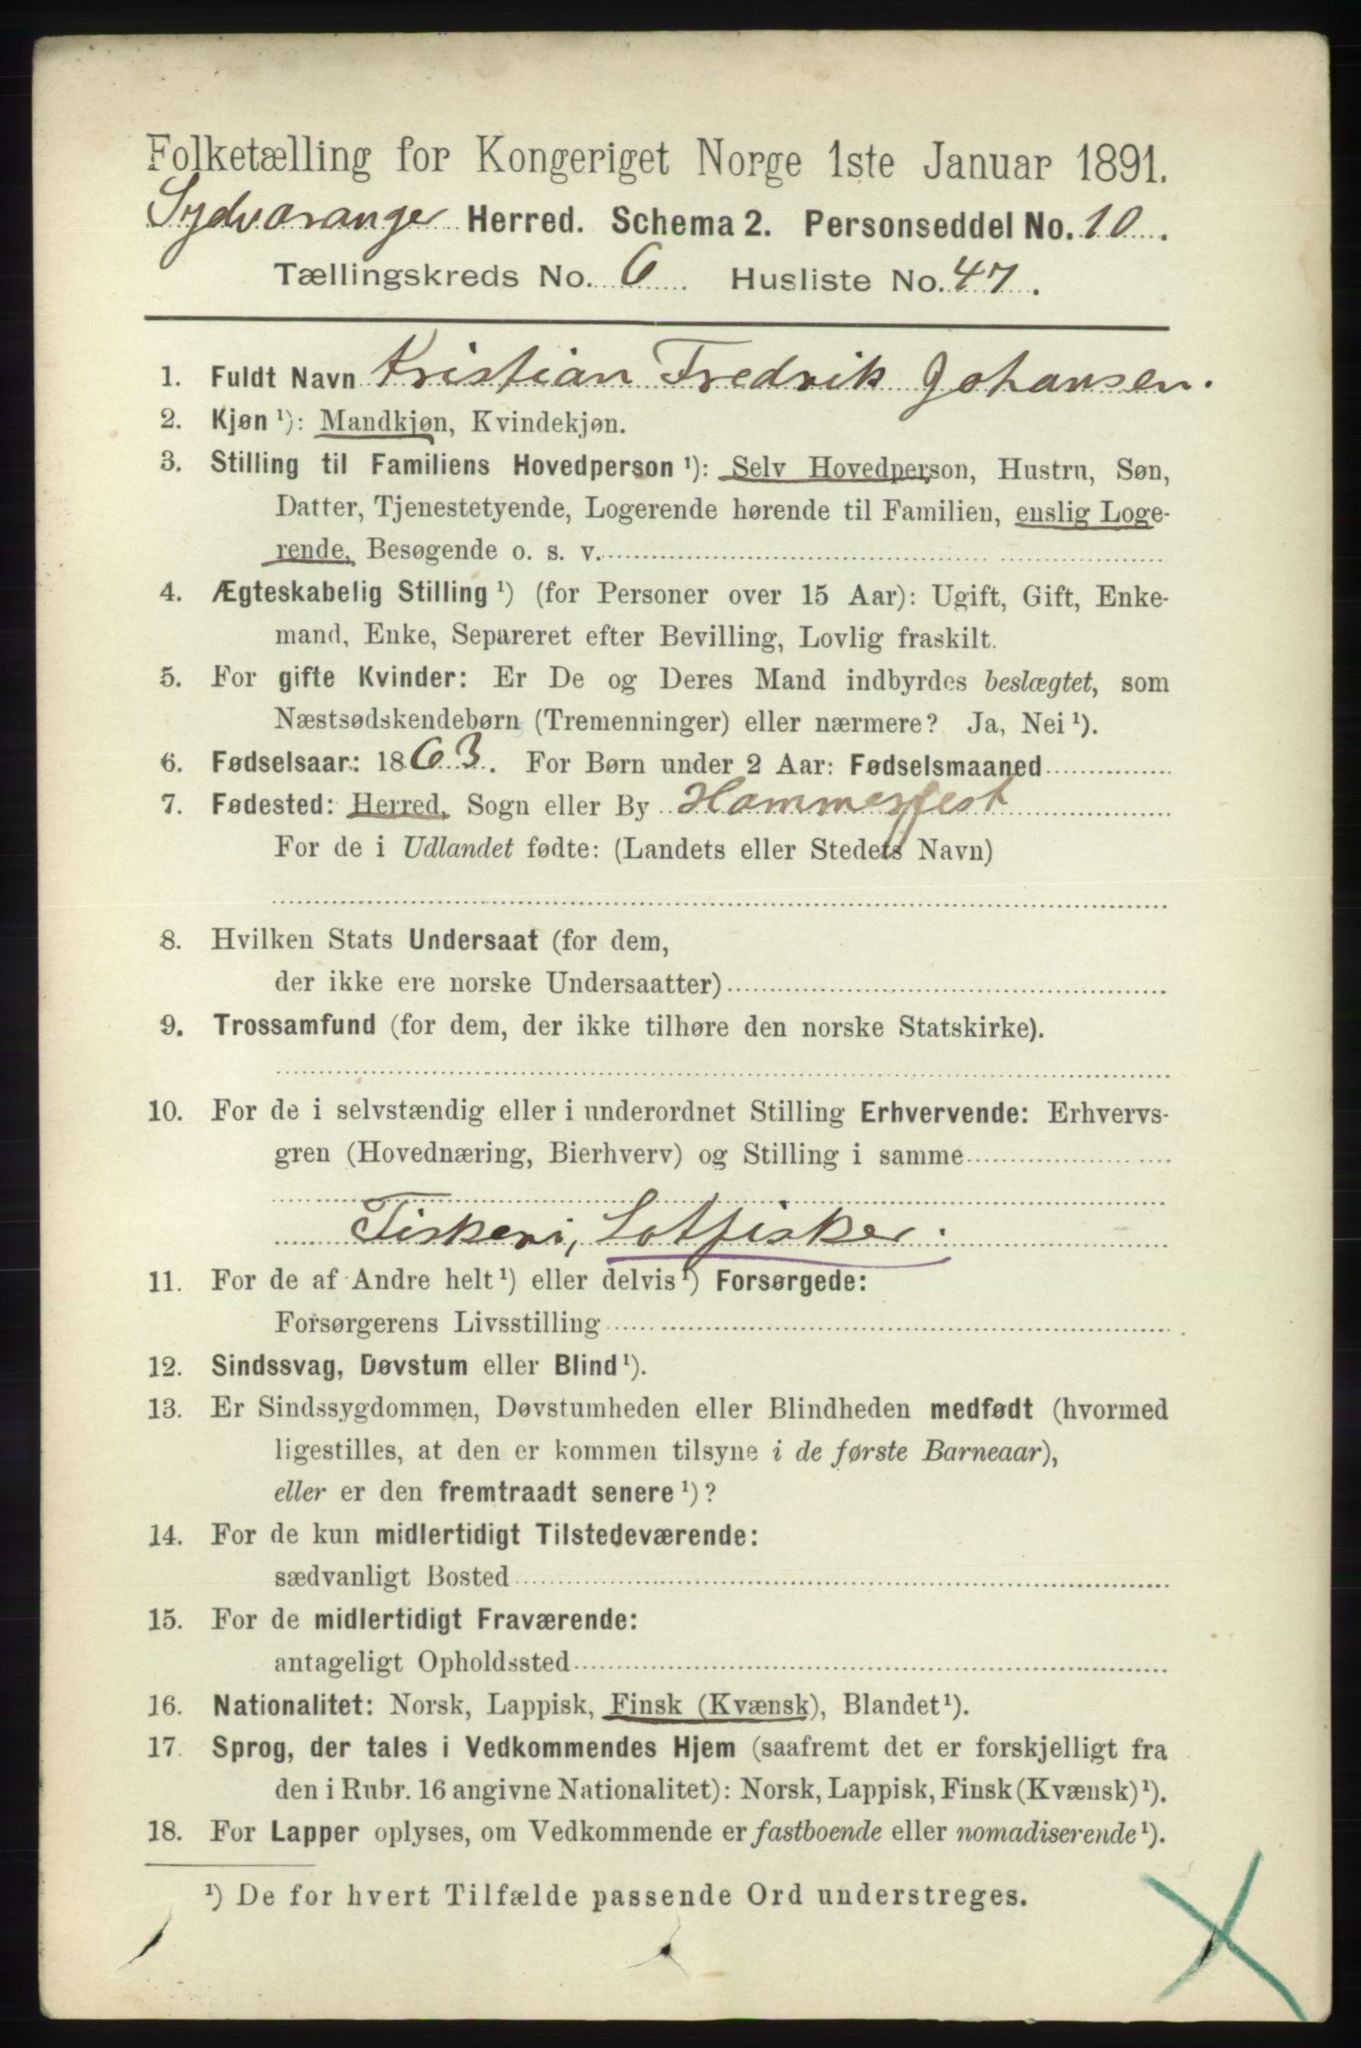 Folketælling for Kongeriget Norge 1ste Januar 1891.
Sydvaranger Herred. Schema 2. Personseddel No. 10.
Tællingskreds No. 6 Husliste No. 47.
1. Fuldt Navn Kristian Fredrik Johansen.
2. Kjøn ¹): Mandkjøn, Kvindekjøn.
3. Stilling til Familiens Hovedperson ¹): Selv Hovedperson, Hustru, Søn,
Datter, Tjenestetyende, Logerende hørende til Familien, enslig Loge-
rende, Besøgende o. s. v.
4. Ægteskabelig Stilling ¹) (for Personer over 15 Aar): Ugift, Gift, Enke-
mand, Enke, Separeret efter Bevilling, Lovlig fraskilt.
5. For gifte Kvinder: Er De og Deres Mand indbyrdes beslægtet, som
Næstsødskendebørn (Tremenninger) eller nærmere? Ja, Nei ¹).
6. Fødselsaar: 1863. For Børn under 2 Aar: Fødselsmaaned
7. Fødested: Herred, Sogn eller By Hammerfest
For de i Udlandet fødte: (Landets eller Stedets Navn)
8. Hvilken Stats Undersaat (for dem,
der ikke ere norske Undersaatter)
9. Trossamfund (for dem, der ikke tilhøre den norske Statskirke).
10. For de i selvstændig eller i underordnet Stilling Erhvervende: Erhvervs-
gren (Hovednæring, Bierhverv) og Stilling i samme
Fiskeri, Lotfisker.
11. For de af Andre helt ¹) eller delvis ¹) Forsørgede:
Forsørgerens Livsstilling
12. Sindssvag, Døvstum eller Blind ¹).
13. Er Sindssygdommen, Døvstumheden eller Blindheden medfødt (hvormed
ligestilles, at den er kommen tilsyne i de første Barneaar),
eller er den fremtraadt senere ¹)?
14. For de kun midlertidigt Tilstedeværende:
sædvanligt Bosted
15. For de midlertidigt Fraværende:
antageligt Opholdssted
16. Nationalitet: Norsk, Lappisk, Finsk (Kvænsk), Blandet ¹).
17. Sprog, der tales i Vedkommendes Hjem (saafremt det er forskjelligt fra
den i Rubr. 16 angivne Nationalitet): Norsk, Lappisk, Finsk (Kvænsk) ¹).
18. For Lapper oplyses, om Vedkommende er fastboende eller nomadiserende ¹).
¹) De for hvert Tilfælde passende Ord understreges.